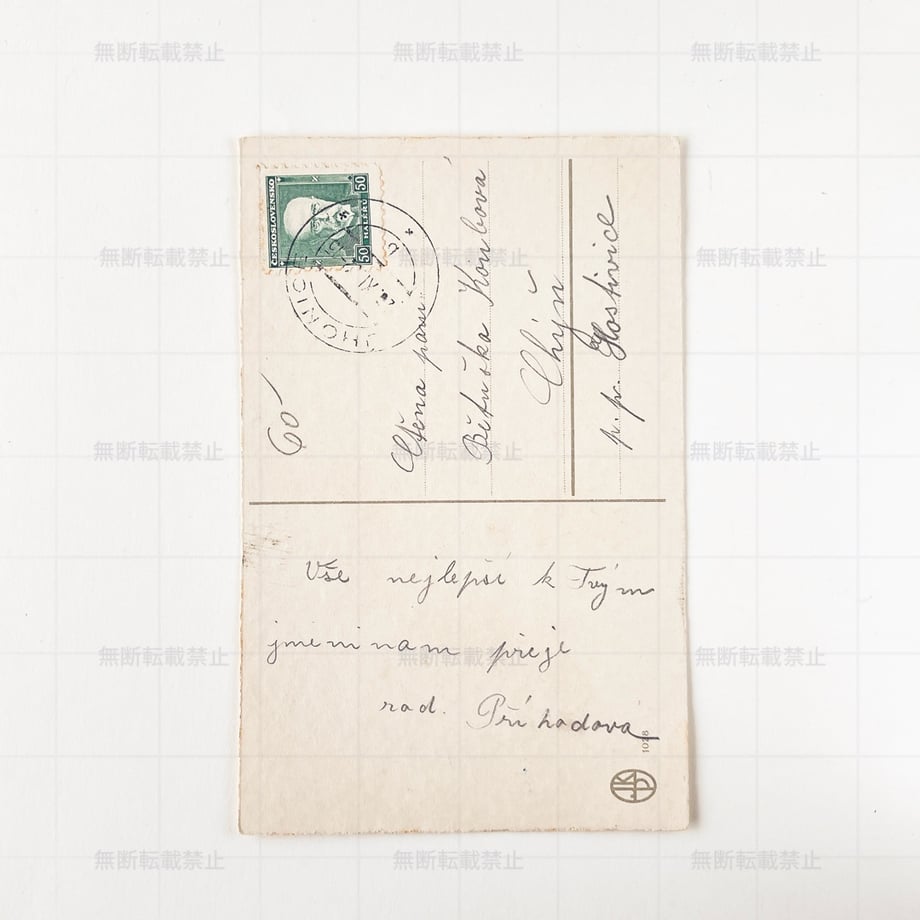 ČESKOSLOVENSKO
50 HALÉŘŮ 50
60
Ctěna paní
Bětuška Koubová
Chýň
p. p. Hostivice
Vše nejlepší k Tvým
jmeninam přeje
rod. Příhodová
1028
無断転載禁止 無断転載禁止 無断転載禁止
無断転載禁止 無断転載禁止 無断転載禁止
無断転載禁止 無断転載禁止 無断転載禁止
無断転載禁止 無断転載禁止 無断転載禁止
無断転載禁止 無断転載禁止 無断転載禁止